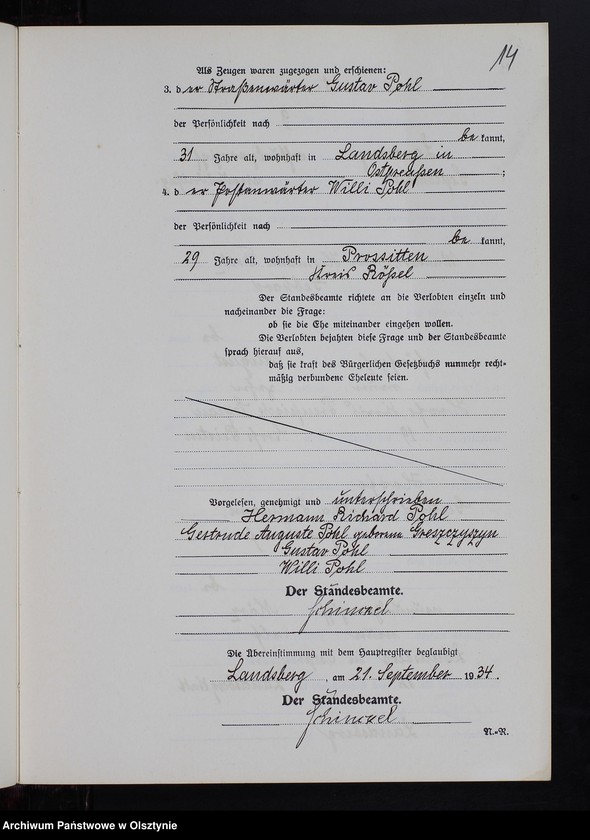 14
Als Zeugen waren zugezogen und erschienen:
3. der Straßenwärter Gustav Pohl
der Persönlichkeit nach
be kannt,
31 Jahre alt, wohnhaft in Landsberg in
Ostpreußen ;
4. der Postanwärter Willi Pohl
der Persönlichkeit nach
be kannt,
29 Jahre alt, wohnhaft in Prossitten
Kreis Rößel
Der Standesbeamte richtete an die Verlobten einzeln und
nacheinander die Frage:
ob sie die Ehe miteinander eingehen wollen.
Die Verlobten bejahten diese Frage und der Standesbeamte
sprach hierauf aus,
daß sie kraft des Bürgerlichen Gesetzbuchs nunmehr recht-
mäßig verbundene Eheleute seien.
Vorgelesen, genehmigt und unterschrieben
Hermann Richard Pohl
Gertrude Auguste Pohl geborene Greszczyszyn
Gustav Pohl
Willi Pohl
Der Standesbeamte.
Schinckel
Die Übereinstimmung mit dem Hauptregister beglaubigt
Landsberg, am 21. September 1934.
Der Standesbeamte.
Schinckel
N.-R.
Archiwum Państwowe w Olsztynie